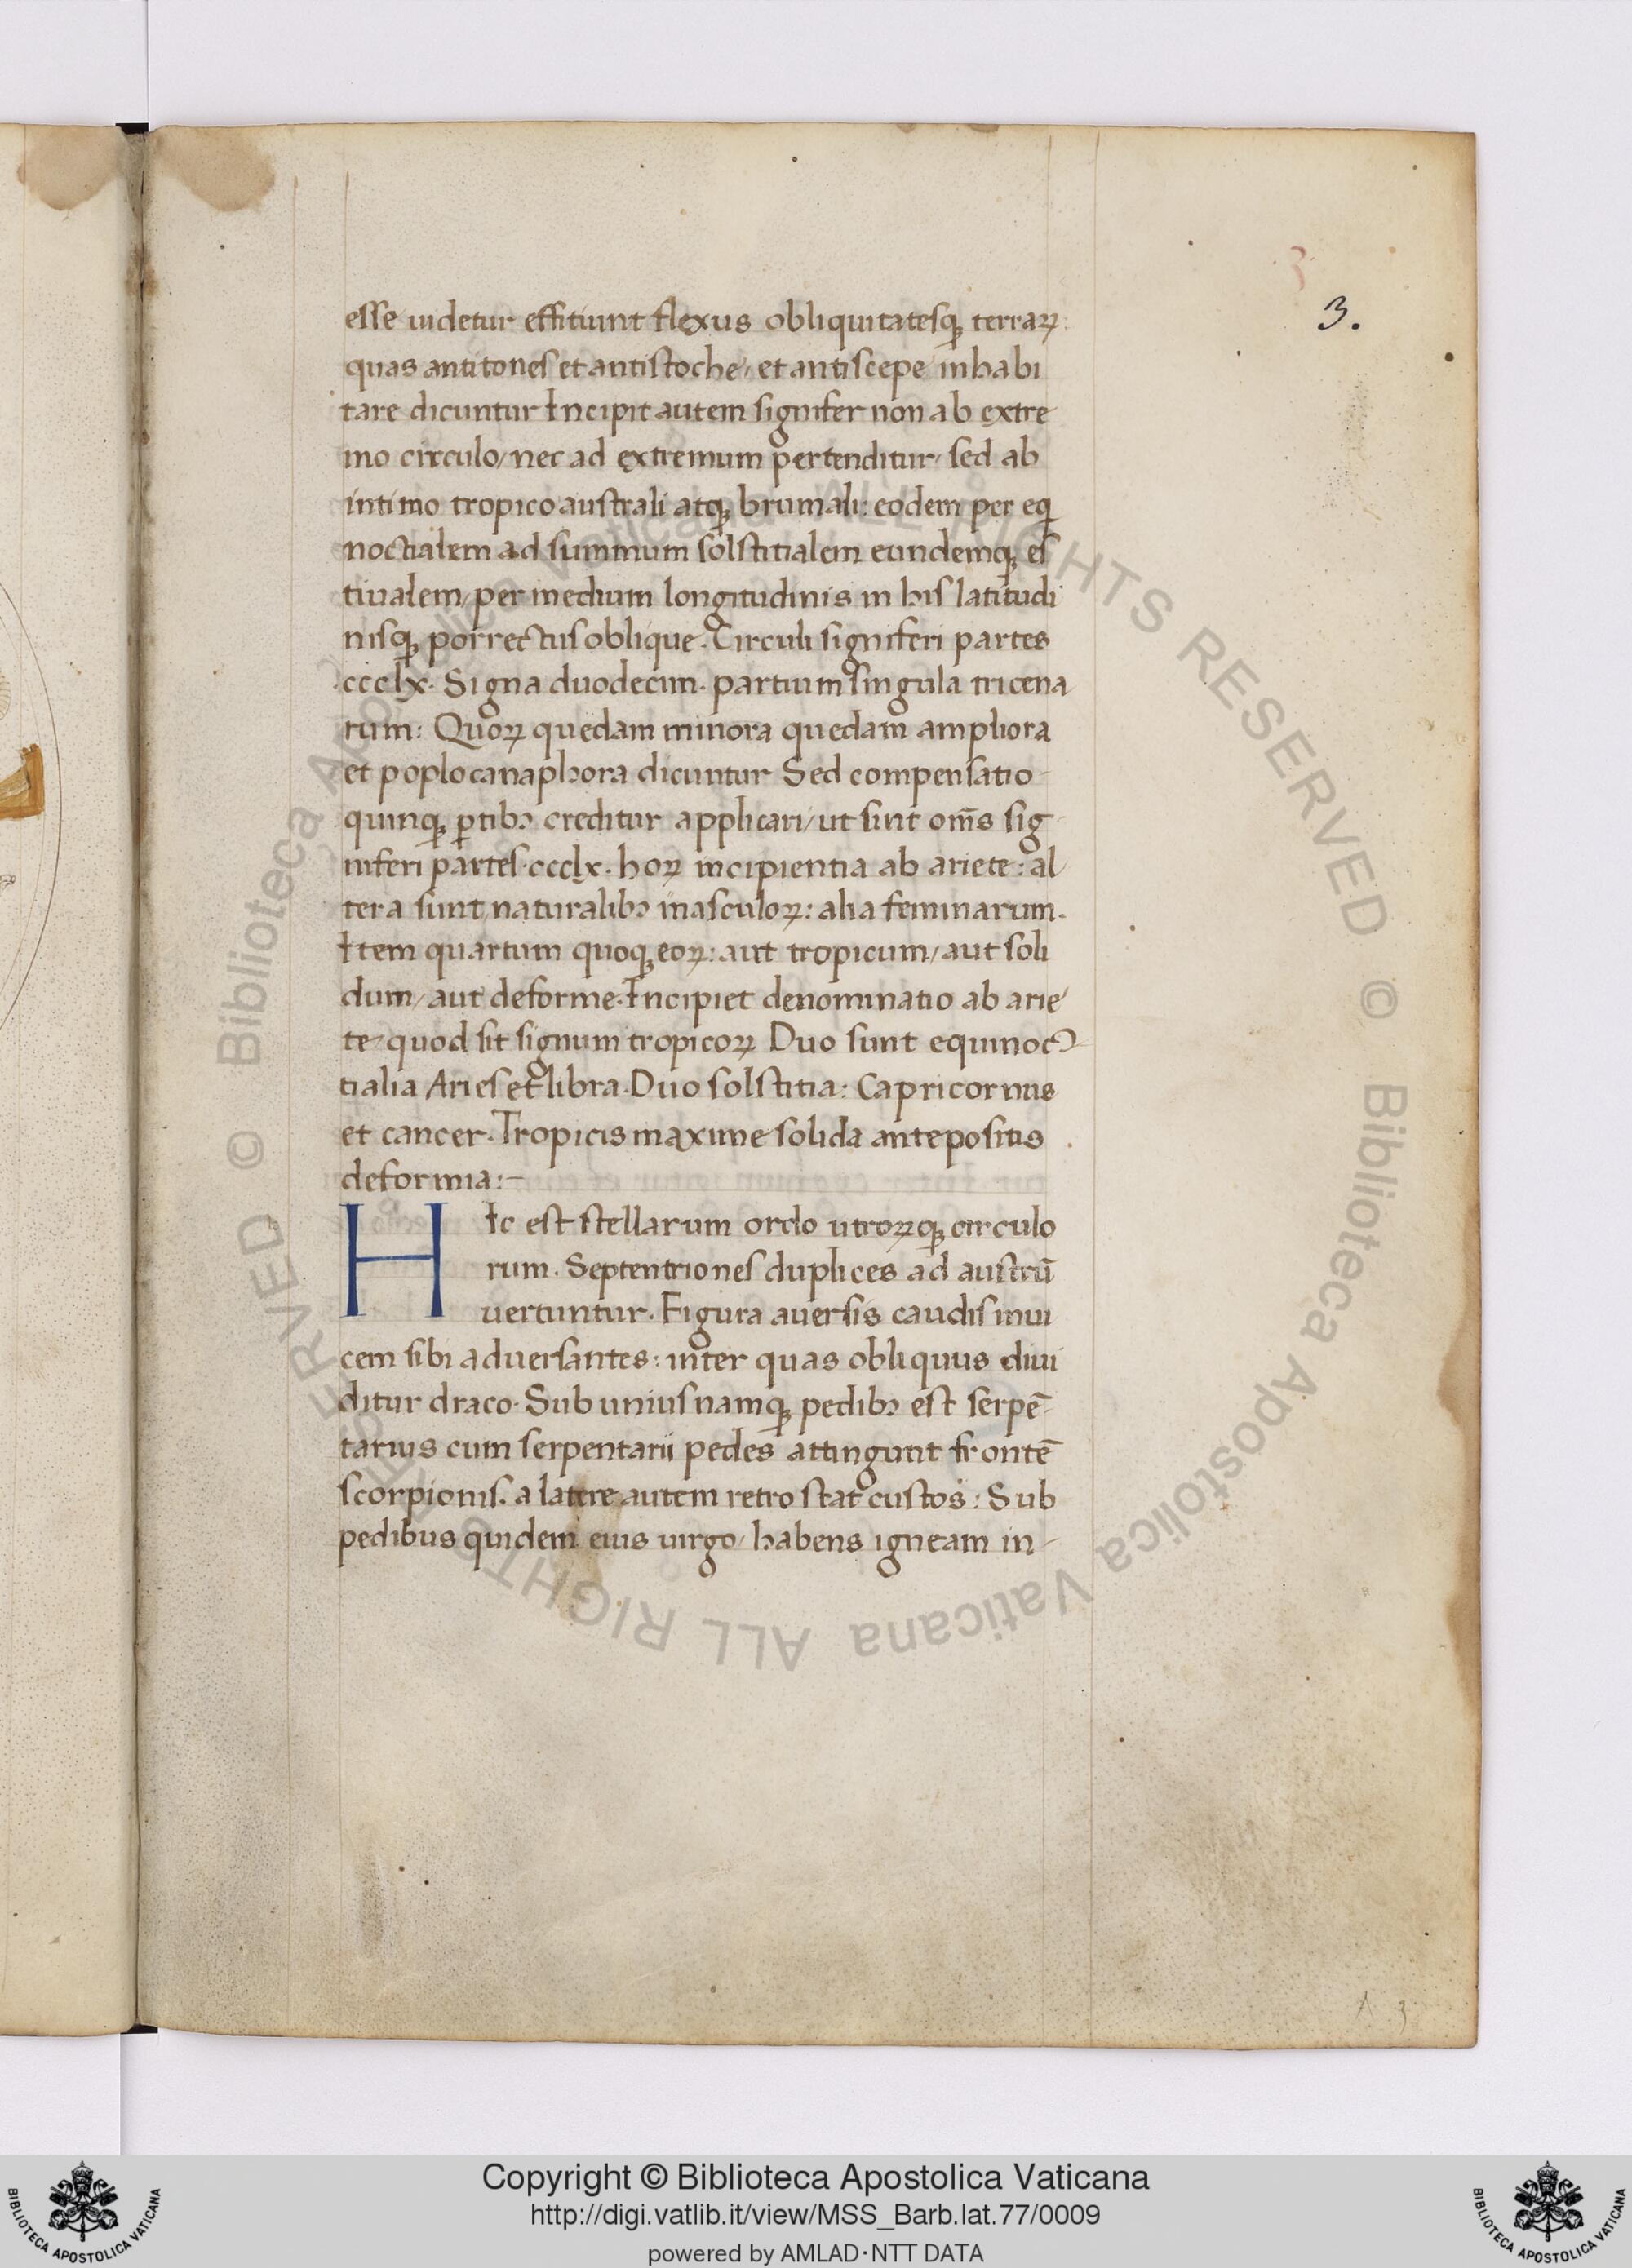 3
3.
esse uidetur effitiunt flexus obliquitatesqꝫ terraꝝ
quas antitones et antistoche, et antiscepe inhabi
tare dicuntur Incipit autem signifer non ab extre
mo circulo/ nec ad extremum pertenditur/ sed ab
intimo tropico australi atqꝫ brumali: eodem per eq
noctialem ad summum solstitialem eundemqꝫ es
tiualem/ per medium longitudinis in his latitudi
nisqꝫ porrectus oblique. Circuli signiferi partes
.ccclx. Signa duodecim. partium singula tricena
rum: Quoꝝ quedam minora quedam ampliora
et poplocanaphora dicuntur Sed compensatio-
quinqꝫ ꝑtibꝫ creditur applicari/ ut sint om̅s sig
niferi partes.ccclx. hoꝝ incipientia ab ariete: al
tera sunt naturalibꝫ masculoꝝ: alia feminarum.
Item quartum quoqꝫ eoꝝ: aut tropicum/ aut soli
dum/ aut deforme. Incipiet denominatio ab arie
te quod sit signum tropicoꝝ Duo sunt equinoc
tialia Aries et libra. Duo solstitia: Capricornus
et cancer. Tropicis maxime solida antepositis .
deformia:-
HIc est stellarum ordo utroꝝqꝫ circulo
rum. Septentriones duplices ad austrū
uertuntur. Figura auersis caudis inui
cem sibi aduersantes: inter quas obliquus diui
ditur draco. Sub unius namqꝫ pedibꝫ est serpē-
tarius cum serpentarii pedes attingunt frontē
scorpionis. a latere autem retro stat custos: Sub
pedibus quidem eius uirgo/ habens igneam in-
A 3
© Biblioteca Apostolica Vaticana ALL RIGHTS RESERVED © Biblioteca Apostolica Vaticana ALL RIGHTS RESERVED
Copyright © Biblioteca Apostolica Vaticana
http://digi.vatlib.it/view/MSS_Barb.lat.77/0009
powered by AMLAD·NTT DATA
BIBLIOTECA APOSTOLICA VATICANA
BIBLIOTECA APOSTOLICA VATICANA